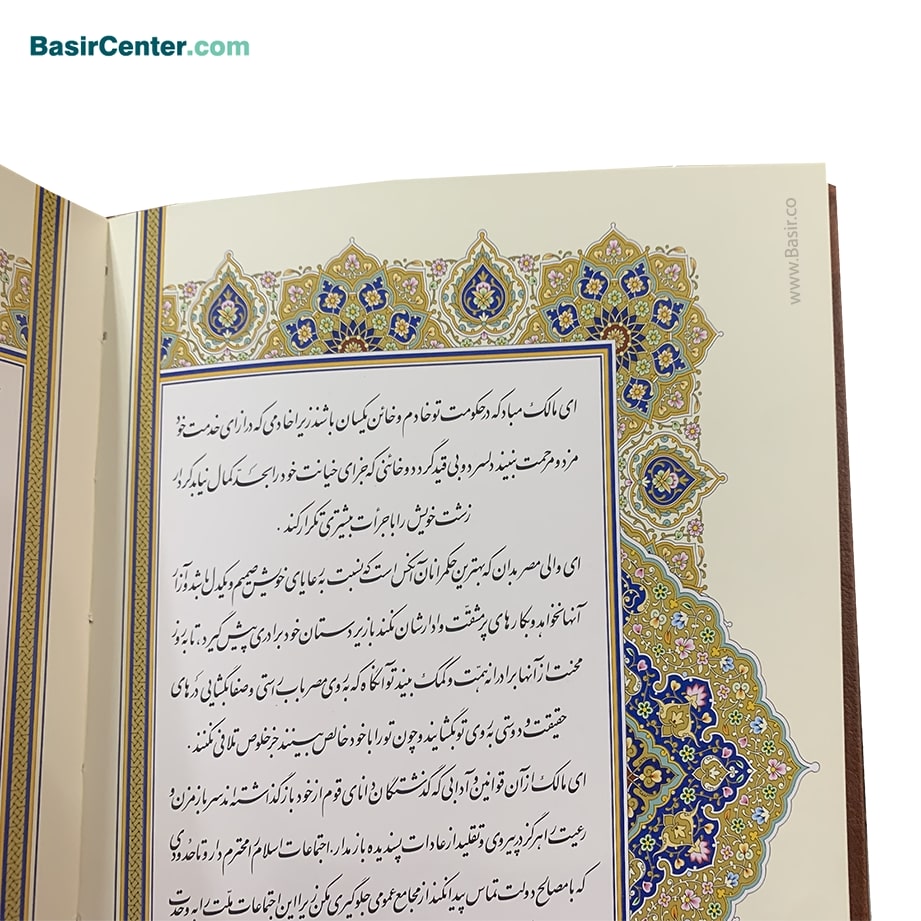 BasirCenter.com
www.Basir.co
ای مالک مباد که در حکومت تو خادم و خائن یکسان باشند زیرا خادمی که در ازای خدمت خود
مزد و مرحمت نبیند دلسرد و بی قید گردد و خائنی که جزای خیانت خود را بحد کمال نیابد کردار
زشت خویش را با جرأت بیشتری تکرار کند .
ای والی مصر بدان که بهترین حکمرانان آنکس است که نسبت به رعایای خویش صمیم و یکدل باشد و آزار
آنها نخواهد و بکارهای پر مشقّت وادارشان نکند با زیر دستان خود برادری پیش گیرد ، تا به روز
محنت از آنها برادرانه همّت و کمک بیند تو آنگاه که به روی مصر باب راستی و صفا بگشایی درهای
حقیقت و دوستی به روی تو بگشایند و چون تو را با خود خالص ببینند جز خلوص تلافی نکنند .
ای مالک از آن قوانین و آدابی که گذشتگان دانای قوم از خود باز گذاشته اند سر باز مزن و
رعیت را هرگز در پیروی و تقلید از عادات پسندیده باز مدار. اجتماعات اسلام را محترم دار و تا حدودی
که با مصالح دولت تماس پیدا نکند از مجامع عمومی جلوگیری مکن زیرا این اجتماعات ملّت را به وحدت